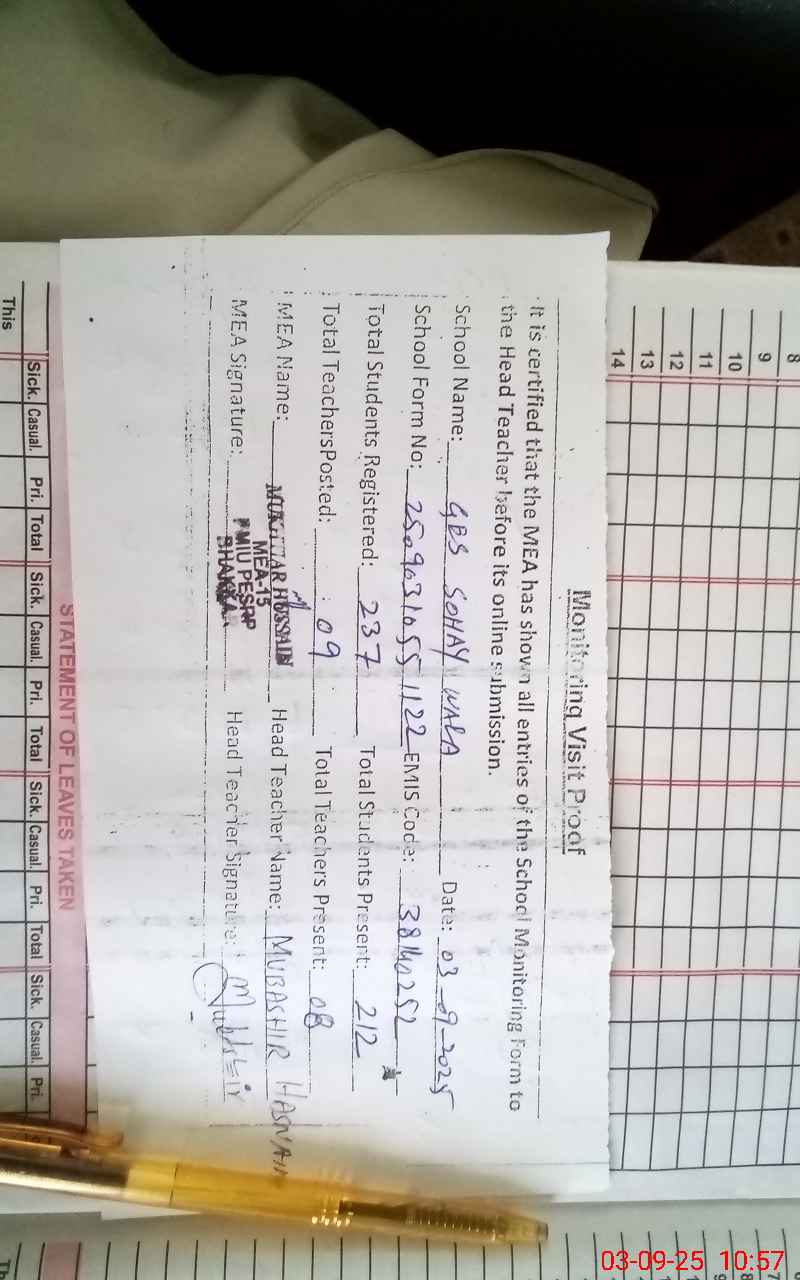 Monitoring Visit Proof
It is certified that the MEA has shown all entries of the School Monitoring Form to
the Head Teacher before its online submission.
School Name: GBS SOHAY WALA Date: 03-09-2025
School Form No: 2509031055 1122 EMIS Code: 38140252
Total Students Registered: 237 Total Students Present: 212
Total TeachersPosted: 09 Total Teachers Present: 08
MEA Name: MUKHTAR HUSSAIN Head Teacher Name: MUBASHIR HASNAIN
MEA-15
PMIU PESRP
BHAKKAR
MEA Signature: Head Teacher Signature: Mubashir
8
9
10
11
12
13
14
STATEMENT OF LEAVES TAKEN
Sick. Casual. Pri. Total Sick. Casual. Pri. Total Sick. Casual. Pri. Total Sick. Casual. Pri.
This
03-09-25 10:57